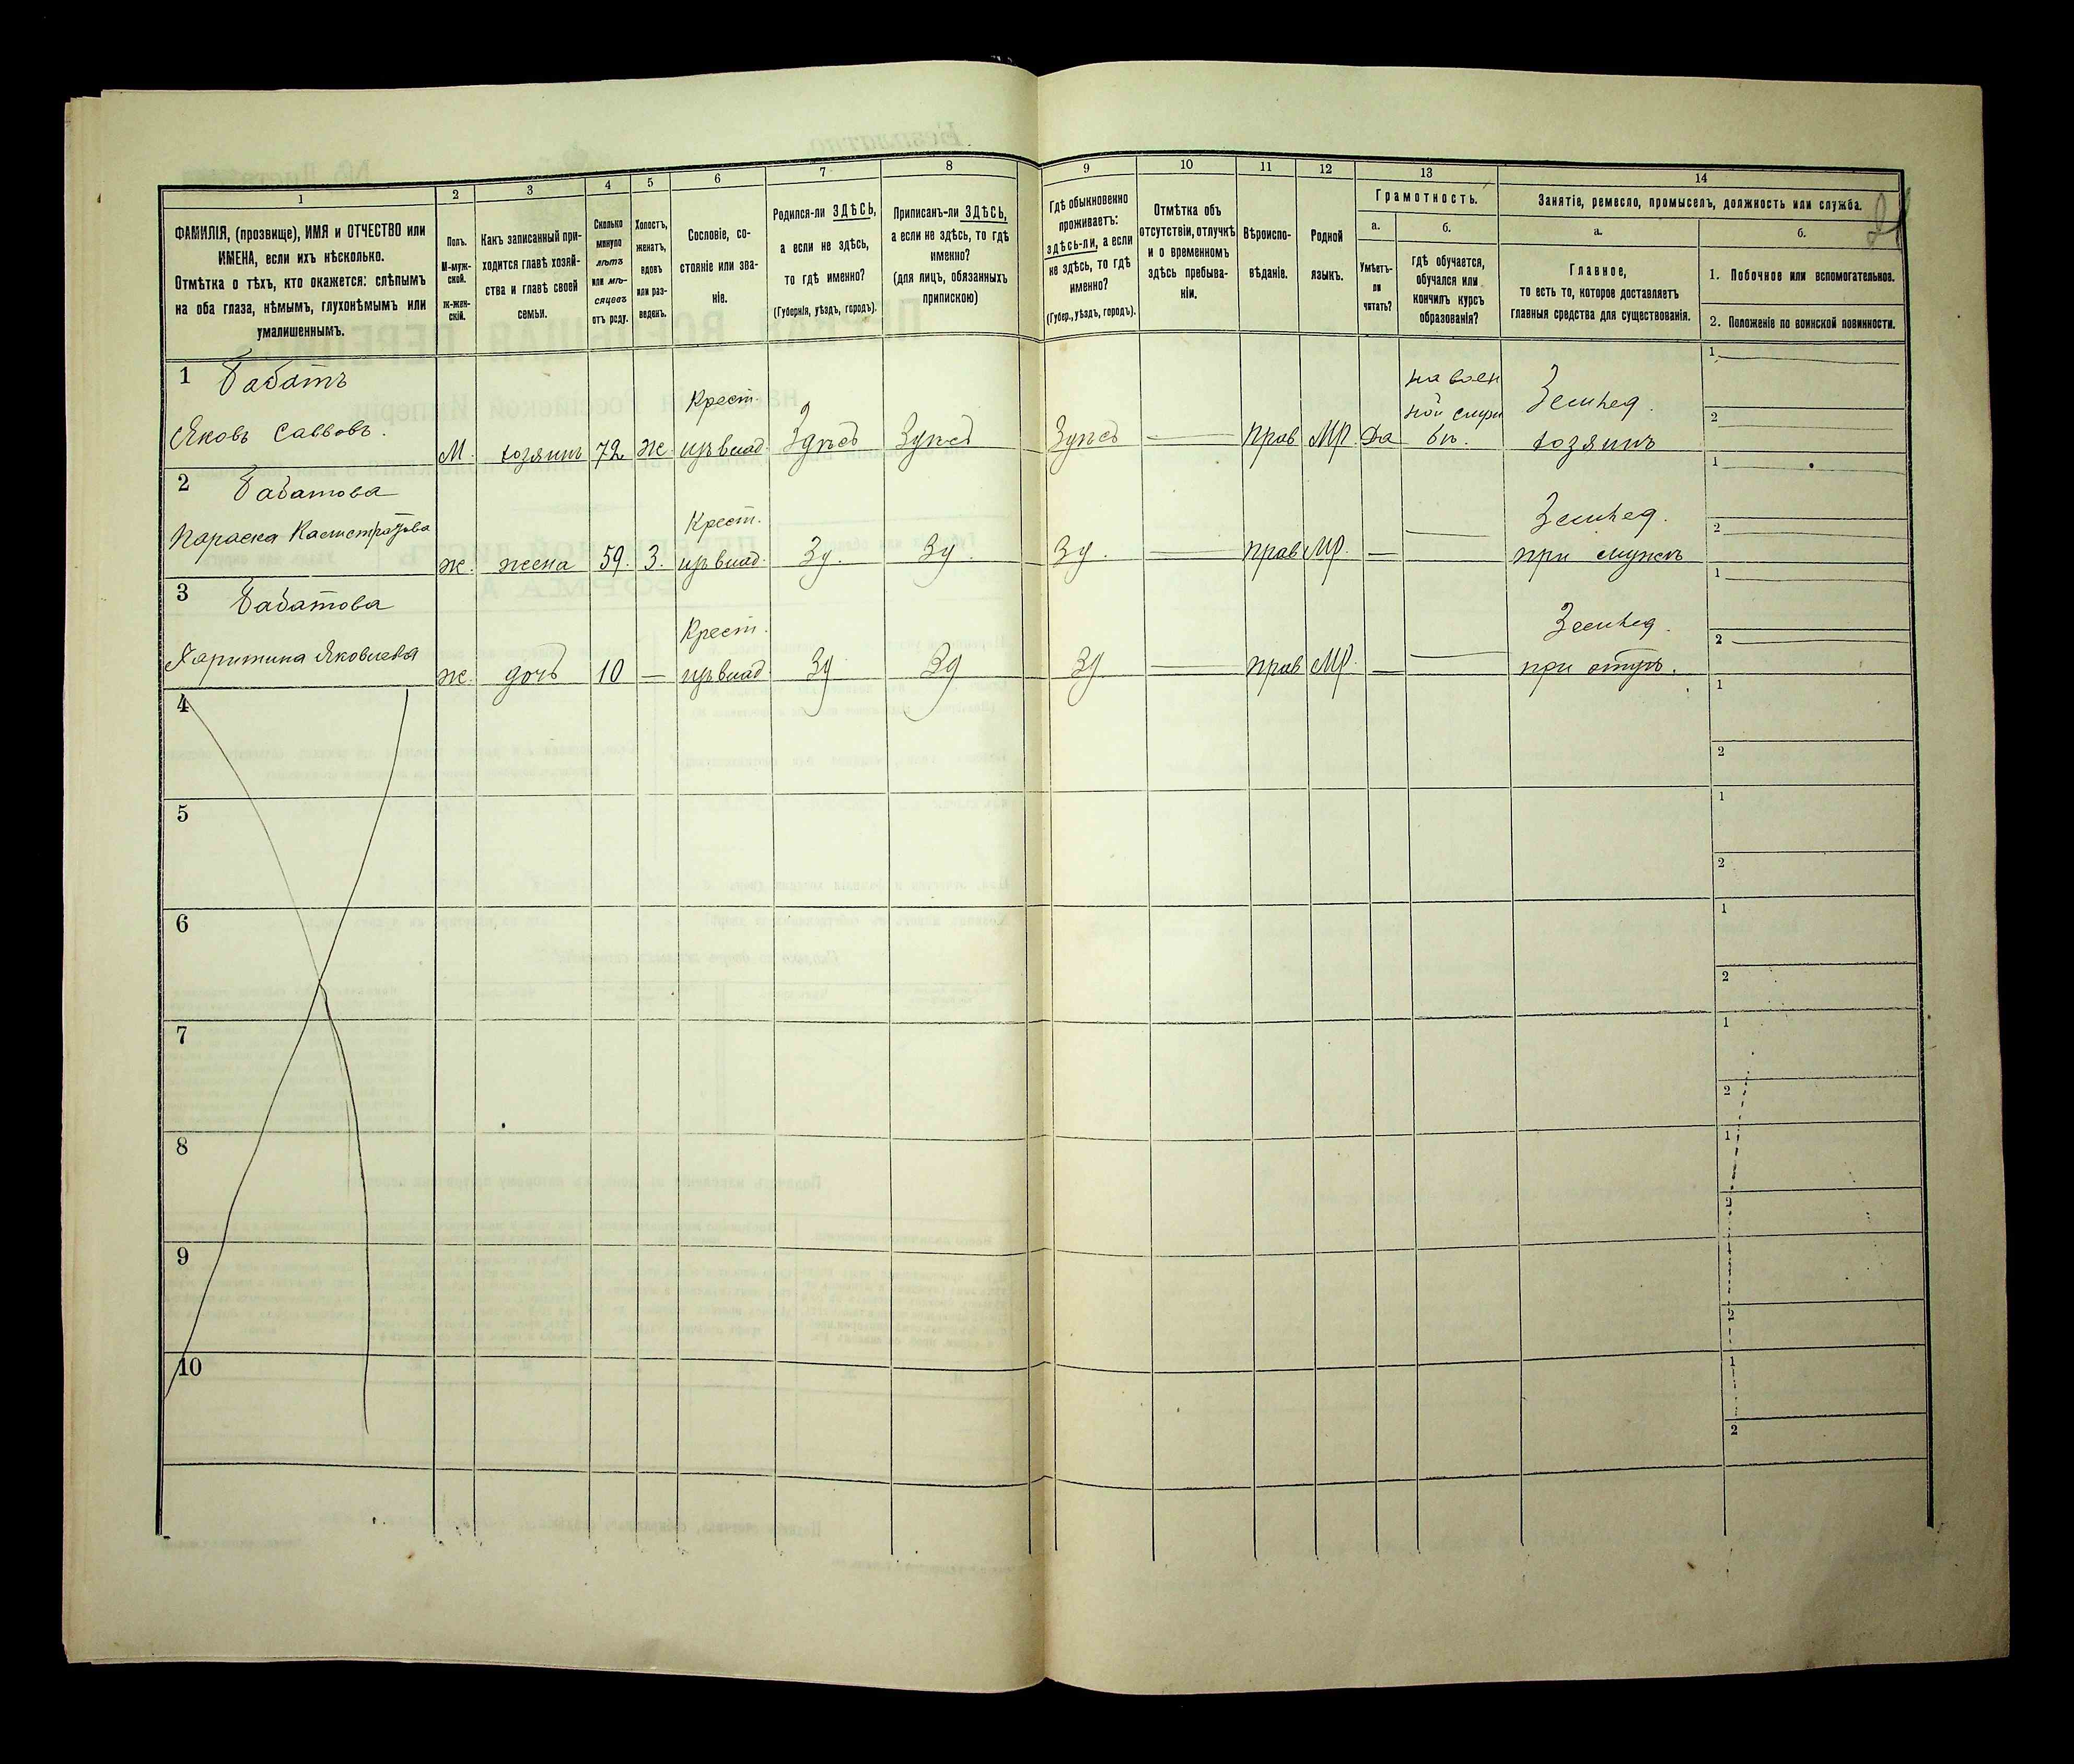 1
2
3
4
5
6
7
8
9
10
11
12
13
14
ФАМИЛІЯ, (прозвище), ИМЯ и ОТЧЕСТВО или
ИМЕНА, если ихъ нѣсколько.
Отмѣтка о тѣхъ, кто окажется: слѣпымъ
на оба глаза, нѣмымъ, глухонѣмымъ или
умалишеннымъ.
Полъ.
М-муж-
ской.
Ж-жен-
скій.
Какъ записанный при-
ходится главѣ хозяй-
ства и главѣ своей
семьи.
Сколько
минуло
лѣтъ
или мѣ-
сяцевъ
отъ роду.
Холостъ,
женатъ,
вдовъ
или раз-
веденъ.
Сословіе, со-
стояніе или зва-
ніе.
Родился-ли ЗДѢСЬ,
а если не здѣсь,
то гдѣ именно?
(Губернія, уѣздъ, городъ).
Приписанъ-ли ЗДѢСЬ,
а если не здѣсь, то гдѣ
именно?
(для лицъ, обязанныхъ
припискою)
Гдѣ обыкновенно
проживаетъ:
здѣсь-ли, а если
не здѣсь, то гдѣ
именно?
(Губер., уѣздъ, городъ).
Отмѣтка объ
отсутствіи, отлучкѣ
и о временномъ
здѣсь пребыва-
ніи.
Вѣроиспо-
вѣданіе.
Родной
языкъ.
Грамотность.
а.
Умѣетъ-
ли
читать?
б.
гдѣ обучается,
обучался или
кончилъ курсъ
образованія?
Занятіе, ремесло, промыселъ, должность или служба.
а.
Главное,
то есть то, которое доставляетъ
главныя средства для существованія.
б.
1. Побочное или вспомогательное.
2. Положеніе по воинской повинности.
1 Бабатъ
Яковъ Саввовъ.
М. хозяинъ 72 Ж Крест.
изъ влад. Здѣсь Здѣсь Здѣсь — прав МР. Да на воен
ной служ
бѣ. Землед.
хозяинъ
1
2
2 Бабатова
Параска
ж. жена 59. З. Крест.
изъ влад. Зд. Зд. Зд. — прав МР. — — Землед.
при мужѣ
1
2
3 Бабатова
Харитина Яковлева
ж. дочь 10 — Крест.
изъ влад Зд Зд Зд — прав МР. — — Землед.
при отцѣ.
1
2
4
1
2
5
1
2
6
1
2
7
1
2
8
1
2
9
1
2
10
1
2